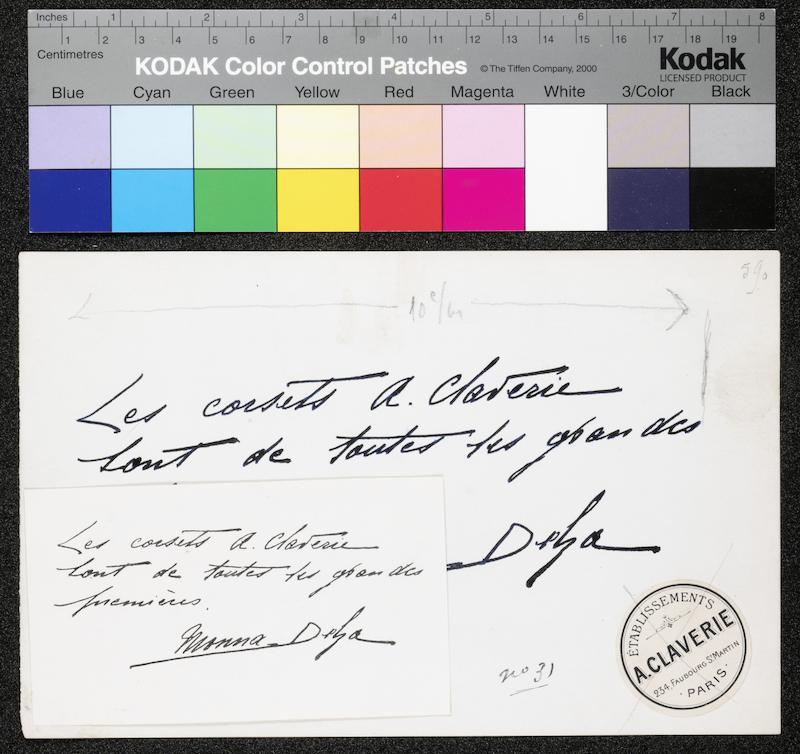 Inches 1 2 3 4 5 6 7 8
1 2 3 4 5 6 7 8 9 10 11 12 13 14 15 16 17 18 19
Centimetres
KODAK Color Control Patches © The Tiffen Company, 2000 Kodak
LICENSED PRODUCT
Blue Cyan Green Yellow Red Magenta White 3/Color Black
10 c/m
Les corsets A. Claverie
sont de toutes les grandes
Delza
Les corsets A. Claverie
sont de toutes les grandes
premières.
Monna Delza
no 31
ÉTABLISSEMENTS
A. CLAVERIE
234, FAUBOURG ST MARTIN
PARIS